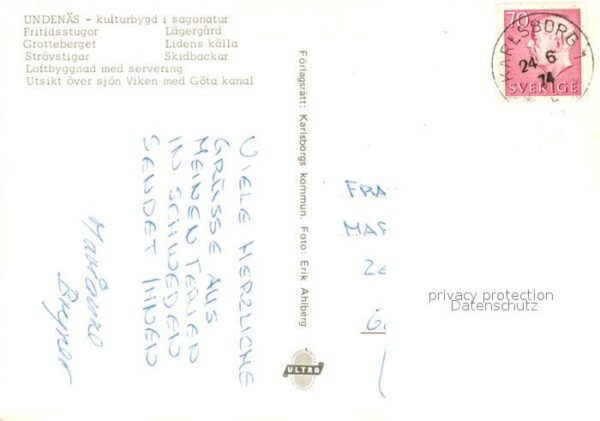 UNDENÄS - kulturbygd i sagonatur
Fritidsstugor Lägergård
Grotteberget Lidens källa
Strövstigar Skidbackar
Loftbyggnad med servering
Utsikt över sjön Viken med Göta kanal
70
SVERIGE
KARLSBORG 1
24 6
74
Förlagsrätt: Karlsborgs kommun. Foto: Erik Ahlberg
ULTRA
VIELE HERZLICHE
GRÜSSE AUS
MEINEN FERIEN
IN SCHWEDEN
SENDET IHNEN
FRA
MAR
privacy protection
Datenschutz